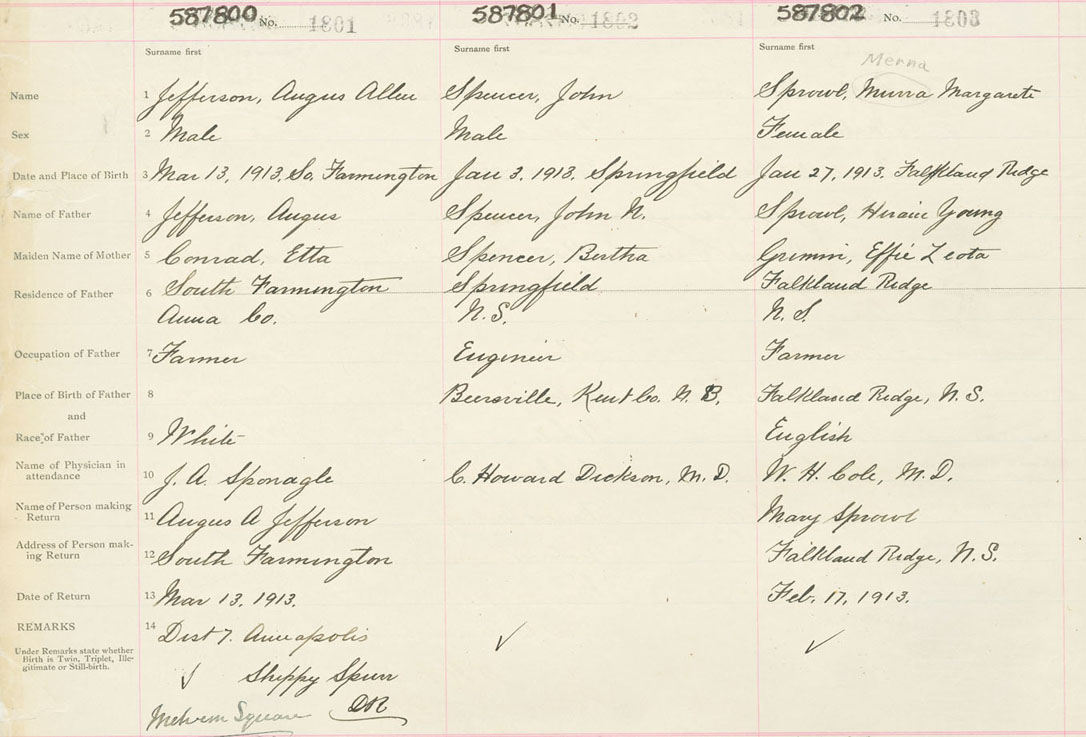 587800 No. 1801 587801 No. 1802 587802 No. 1803
Surname first Surname first Surname first
Merna
Name 1 Jefferson, Angus Allen Spencer, John Sprowl, Murra Margarete
Sex 2 Male Male Female
Date and Place of Birth 3 Mar 13, 1913, So. Farmington Jan 3, 1913, Springfield Jan 27, 1913, Falkland Ridge
Name of Father 4 Jefferson, Angus Spencer, John N. Sprowl, Hiram Young
Maiden Name of Mother 5 Conrad, Etta Spencer, Bertha Grimm, Effie Leota
Residence of Father 6 South Farmington Springfield Falkland Ridge
Anna Co. N.S. N.S.
Occupation of Father 7 Farmer Engineer Farmer
Place of Birth of Father 8 Beersville, Kent Co. N.B. Falkland Ridge, N.S.
and
Race of Father 9 White English
Name of Physician in
attendance 10 J. A. Sponagle C. Howard Dickson, M.D. W. H. Cole, M.D.
Name of Person making
Return 11 Angus A Jefferson Mary Sprowl
Address of Person mak-
ing Return 12 South Farmington Falkland Ridge, N.S.
Date of Return 13 Mar 13, 1913. Feb. 17, 1913.
REMARKS 14 Dist 7. Annapolis
Under Remarks state whether
Birth is Twin, Triplet, Ille-
gitimate or Still-birth.
✓ ✓
✓ Shippy Spurr
Melvern Square DR